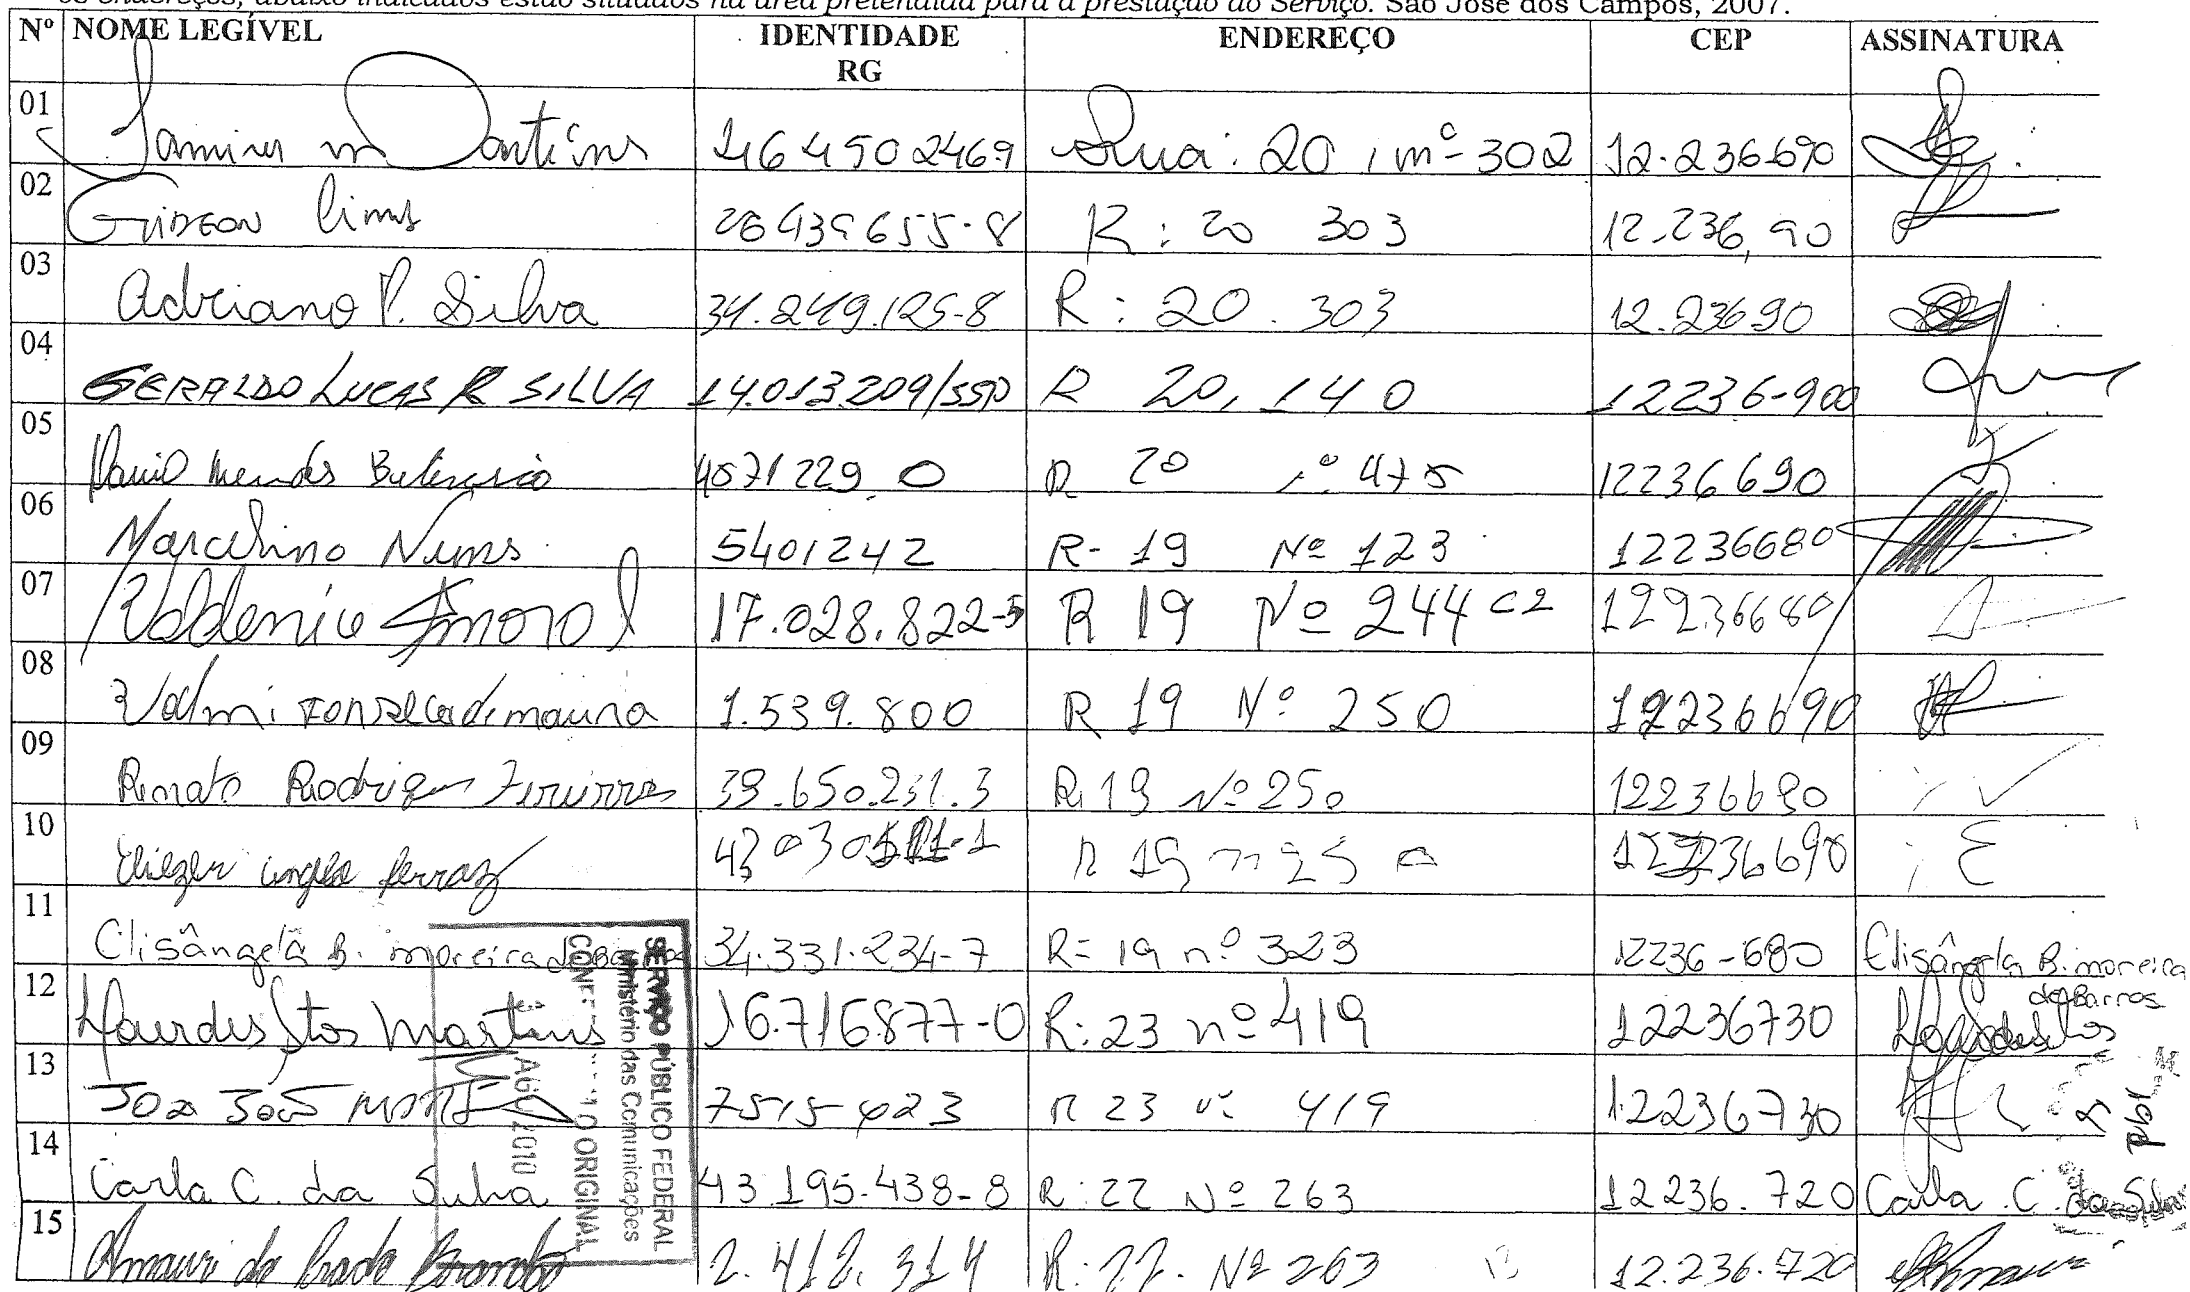 os endereços, abaixo indicados estão situados na área pretendida para a prestação do Serviço. São José dos Campos, 2007.
Nº NOME LEGÍVEL IDENTIDADE RG ENDEREÇO CEP ASSINATURA
01 Rua: 20, nº 302 12.236690
02 GIDEON Lima R: 20 303 12.236,90
03 Adriano P. Silva 34.249.125-8 R: 20. 303 12.23690
04 GERALDO LUCAS R SILVA 14.013.209/SSP R 20, 140 12236-900
05 Mendes R 20 12236690
06 Marcelino Nunes 5401242 R- 19 Nº 123 12236680
07 17.028.822-5 R 19 Nº 244 C2 12236680
08 Valmi Fonseca de moura 1.539.800 R 19 Nº 250 12236690
09 Renato Rodrigues 39.650.231.3 R 19 Nº 250 12236690
10 Eliezer ferraz R 19 n 250 12236690
11 Elisângela B. moreira de Barros 34.331.234-7 R= 19 nº 323 12236-680 Elisângela B. moreira de Barros
12 Lourdes Stos Martins 16.716.877-0 R: 23 nº 419 12236730
13 R 23 419 12236730
14 Carla C. da Silva 43 195.438-8 R: 22 Nº 263 12236.720 Carla C. da Silva
15 Amauri do Prado 2.412.314 R: 22. Nº 263 12.236.720 Amauri
SERVIÇO PÚBLICO FEDERAL
Ministério das Comunicações
ORIGINAL
AGO 2010